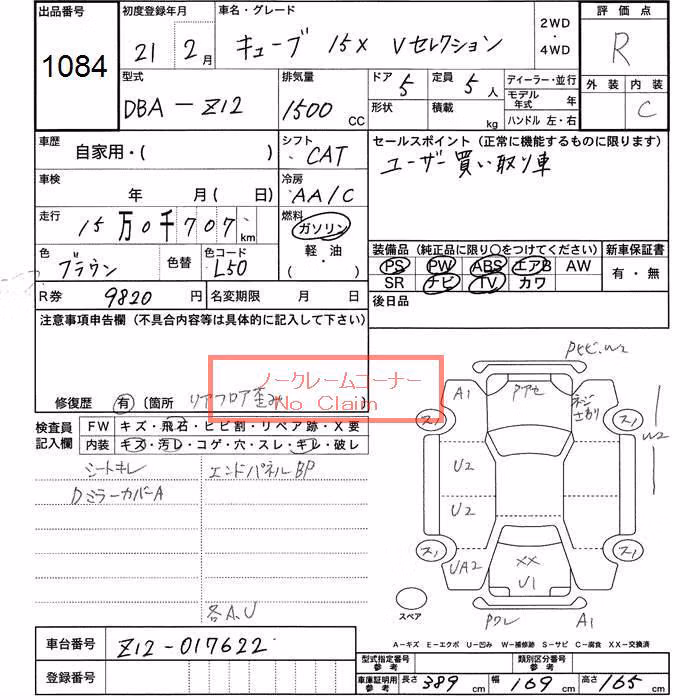 出品番号
1084
初度登録年月
21年 2月
車名・グレード
キューブ 15X Vセレクション
2WD
・
4WD
評価点
R
外装 内装
C
型式
DBA-Z12
排気量
1500 CC
ドア 5
形状
定員 5人
積載 kg
ディーラー・並行
モデル年式 年
ハンドル 左・右
車歴
自家用・( )
シフト
CAT
車検
年 月( 日)
冷房
AA/C
走行
15万0千707 km
燃料
ガソリン
軽・油
( )
色
ブラウン
色替
色コード
L50
R券 9820円
名変期限 月 日
セールスポイント(正常に機能するものに限ります)
ユーザー買い取り車
装備品(純正品に限り○をつけてください)
PS PW ABS エアB AW
SR ナビ TV カワ
新車保証書
有・無
後日品
注意事項申告欄(不具合内容等は具体的に記入して下さい)
ノークレームコーナー
No Claim
修復歴 有(箇所 リアフロア歪み
検査員記入欄
FW キズ・飛石・ヒビ割・リペア跡・X要
内装 キズ・汚レ・コゲ・穴・スレ・キレ・破レ
シートキレ
エンドパネルBP
DミラーカバーA
各A.U
A1
U2
U2
UA2
XX
U1
ス1
ス1
ス1
ス1
W2
スペア
A1
A-キズ E-エクボ U-凹み W-補修跡 S-サビ C-腐食 XX-交換済
車台番号 Z12-017622
登録番号
型式指定番号 参考
類別区分番号 参考
車庫証明用 参考
長さ 389 cm
幅 169 cm
高さ 165 cm